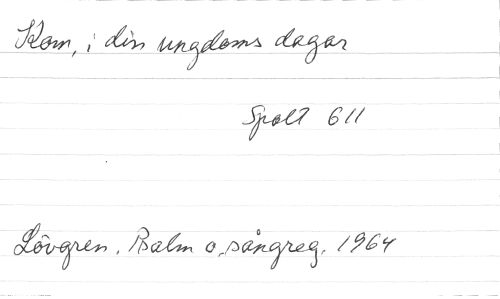 Kom, i din ungdoms dagar
Spalt 611
Lövgren. Psalm o. sångreg. 1964